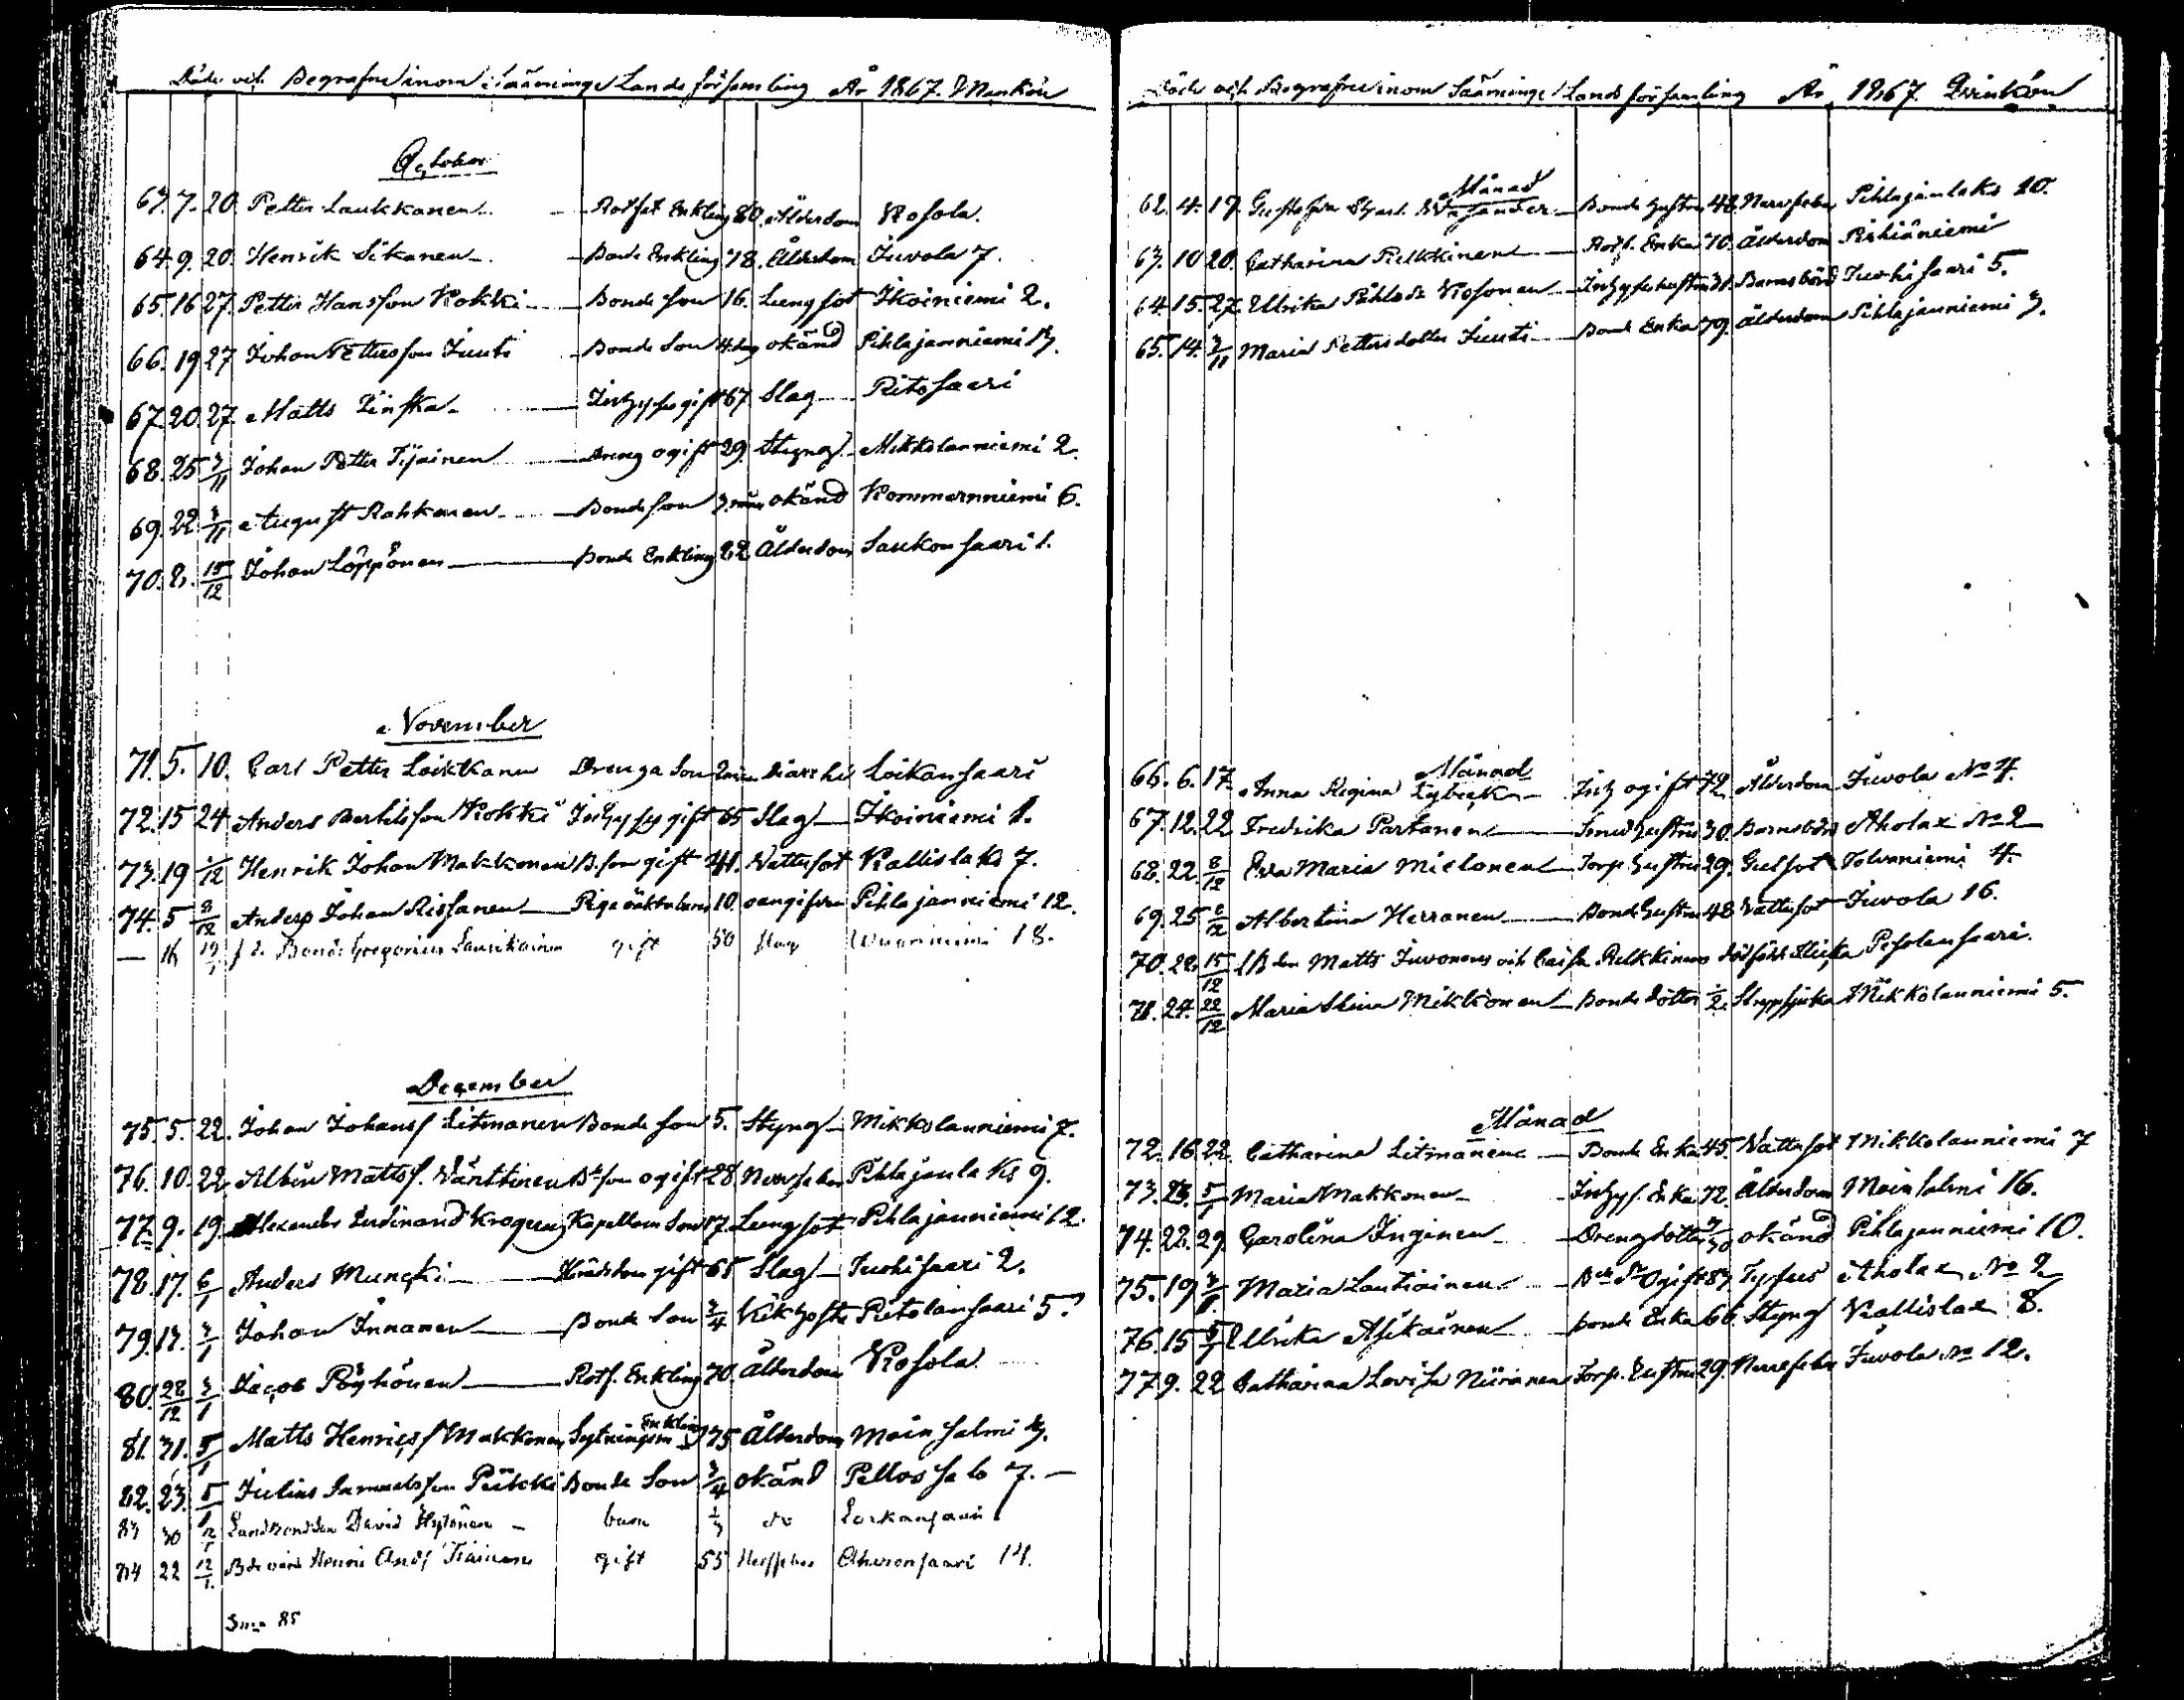 Döde och Begrafne inom Sääminge Lands församling År 1867. Mankön
October
63. 7. 20. Petter Laukkanen Rotfat. Enkling 80. Ålderdom Kosola.
64. 9. 20. Henrik Sikanen Bonde Enkling 78. Ålderdom Juvola 7.
65. 16 27. Petter Hansson Kokki Bonde son 16. Lungsot Ikoiniemi 2.
66. 19 27 Johan Pettersson Juuti Bonde Son 4 dag okänd Pihlajanniemi 3.
67. 20. 27. Matts Zinska Inhyses gift 67 Slag Ritosaari
68. 25 3/11 Johan Petter Tijainen Dreng ogift 29. Styng Mikkolanniemi 2.
69. 22 3/11 August Rahkanen Bonde son 3. mån okänd Kommerniemi 6.
70. 8. 15/12 Johan Löppönen Bonde Enkling 82 Ålderdom Saukonsaari 1.
November
71. 5. 10. Carl Petter Loikkanen Drenga Son 2 mån Diarrhé Loikansaari
72. 15 24 Anders Bertilsson Kokki Inhyses gift 65 Slag Ikoiniemi 1.
73. 19 1/12 Henrik Johan Makkonen B. son gift 41. Vattusot Kallislaks 7.
74. 5 8/12 Anders Johan Rissanen 10. oangifven Pihlajanniemi 12.
— 16 Bond. Gregorius Laurikainen gift 50 slag 18.
December
75. 5. 22. Johan Johanss. Litmanen Bonde son 5. Styng Mikkolanniemi 7.
76. 10. 22. Albin Mattss. Vänttinen B. son ogift 28. Nervfeber Pihlajanlaks 9.
77. 9. 19 Alexander Ferdinand Krogerus Kapellans Son 17. Lungsot Pihlajanniemi 12.
78. 17. 6/1 Anders Muncki gift 65 Slag Juohisaari 2.
79. 13. 3/1 Johan Innanen Bonde Son 3/4 Kikhosta Ritolansaari 5.
80. 28/12 3/1 Jacob Pöyhönen Rotf. Enkling 70. Ålderdom Kosola
81. 31. 5/1 Matts Henricss. Makkonen Sytningsm. Enkling 75 Ålderdom Moinsalmi 3.
82. 23. 5/1 Julius Samuelsson Pirkki Bonde Son 3/4 okänd Pellossalo 7. —
83 30 David Hytönen barn do
84 22 12/1. Henric Ands. Tiainen gift 55 Ahvonsaari 14.
Sma 85
Döde och Begrafne inom Sääminge Lands församling År 1867. Qvinkön
Månad
62. 4. 17. Bonde hustru 48. Nervfeber Pihlajanlaks 20.
63. 10 20. Catharina Pelkkinen Rotf. Enka 70. Ålderdom Pihlajaniemi
64. 15. 27. Ullrika Kosonen Inhyses hustru 31. Barnsbörd Juohisaari 5.
65. 14. 3/11 Maria Pettersdotter Juuti Bonde Enka 79. Ålderdom Pihlajanniemi 3.
Månad
66. 6. 17. Anna Regina Lybeck Inh ogift 72. Ålderdom Juvola No 4.
67. 12. 22 Fredrika Partanen Smed hustru 30. Barnsbörd Aholax No 2
68. 22. 8/12 Eva Maria Mielonen Torp. hustru 29. Gulsot Tolvaniemi 4.
69. 25 8/12 Albertina Herranen Bond hustru 48 Vattusot Juvola 16.
70. 28. 15/12 Matts Juvonens och Caisa Pelkkinens dödfödt flicka Pesolansaari.
71. 24. 22/12 Maria Stina Mikkonen Bonde dotter 1/2. Strypsjuka Mikkolanniemi 5.
Månad
72. 16. 22. Catharina Litmanen Bonde Enka 45. Vattusot Mikkolanniemi 7
73. 23. 5/1 Maria Makkonen Inhys. Enka 72. Ålderdom Moinsalmi 16.
74. 22. 29. Carolina Inginen Drengdotter okänd Pihlajanniemi 10.
75. 19 Maria Lautiainen Ogift 83. Typfus Aholax No 2
76. 15 5/1 Ullrika Asikainen Bonde Enka 66. Styng Kallislax 8.
77. 9. 22 Catharina Lovisa Niiranen Torp. Hustru 29. Nervfeber Juvola No 12.